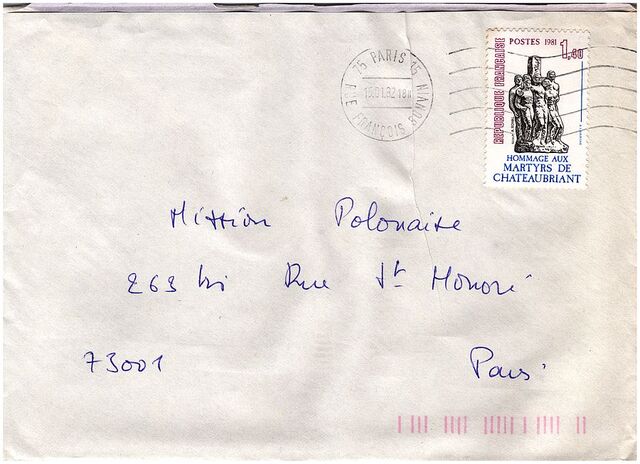 75 PARIS 15
15.01.82 18H
RUE FRANÇOIS BONVIN
POSTES 1981 1,40
REPUBLIQUE FRANÇAISE
HOMMAGE AUX
MARTYRS DE
CHATEAUBRIANT
Mission Polonaise
263 bis Rue St Honoré
75001 Paris